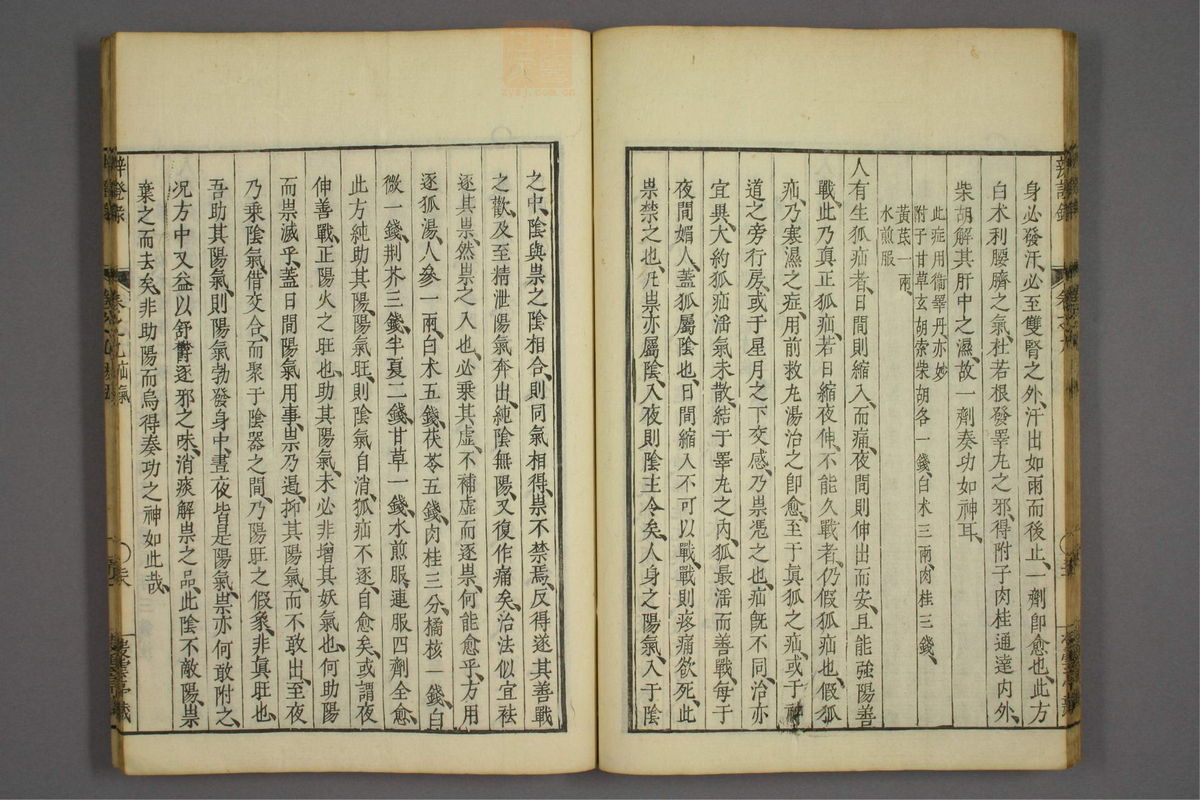 身必發汗、必至雙腎之外、汗出如雨而後止、一劑卽愈也、此方
白朮利腰臍之氣、杜若根發睪丸之邪、得附子肉桂通達內外、
柴胡解其肝中之濕、故一劑奏功如神耳、
此症用衛睪丹亦妙
附子甘草玄胡索柴胡各一錢、白朮三兩肉桂三錢、
黃芪一兩、
水煎服
人有生狐疝者、日間則縮入而痛、夜間則伸出而安、且能強陽善
戰、此乃眞正狐疝、若日縮夜伸、不能久戰者、仍假狐疝也、假狐
疝、乃寒濕之症、用前救丸湯治之卽愈、至于眞狐之疝、或于神
道之旁行房、或于星月之下交感、乃祟憑之也、疝旣不同、治亦
宜異、大約狐疝淫氣未散、結于睪丸之內、狐最淫而善戰、每于
夜間媚人、蓋狐屬陰也、日間縮入不可以戰、戰則疼痛欲死、此
祟禁之也、凡祟亦屬陰、入夜則陰主令矣、人身之陽氣、入于陰
之中、陰與祟之陰相合、則同氣相得、祟不禁焉、反得遂其善戰
之歡、及至精泄陽氣奔出、純陰無陽、又復作痛矣、治法似宜祛
逐其祟、然祟之入也、必乘其虛、不補虛而逐祟、何能愈乎、方用
逐狐湯、人參一兩、白朮五錢、茯苓五錢、肉桂三分、橘核一錢、白
微一錢、荆芥三錢、半夏二錢、甘草一錢、水煎服、連服四劑全愈、
此方純助其陽、陽氣旺、則陰氣自消、狐疝不逐、自愈矣、或謂夜
伸善戰、正陽火之旺也、助其陽氣、未必非增其妖氣也、何助陽
而祟滅乎、蓋日間陽氣用事、祟乃遏抑其陽氣、而不敢出、至夜
乃乘陰氣、借交合、而聚于陰器之間、乃陽旺之假象、非眞旺也、
吾助其陽氣、則陽氣勃發身中、晝夜皆是陽氣、祟亦何敢附之、
况方中又益以舒鬱逐邪之味、消痰解祟之品、此陰不敵陽、祟
棄之而去矣、非助陽而烏得奏功之神如此哉、